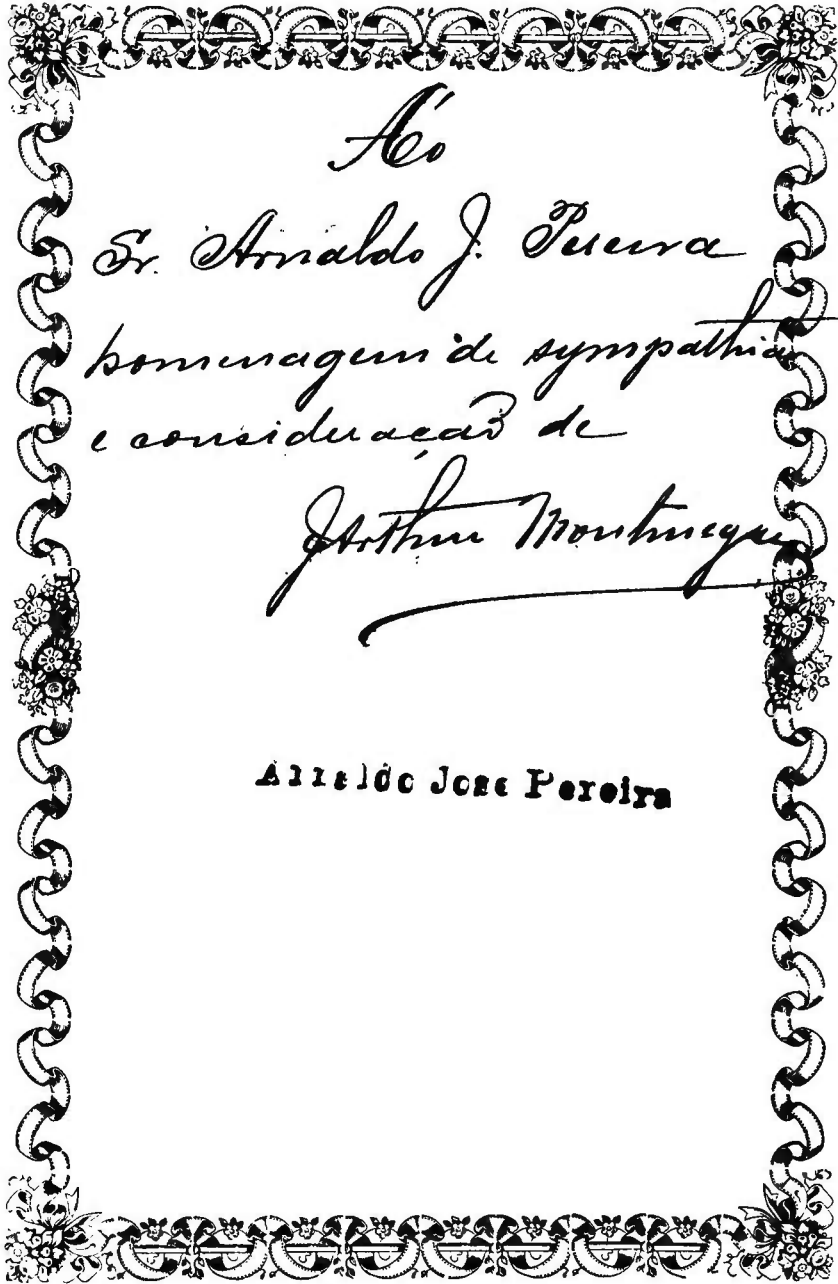 Aó
Sr. Arnaldo J. Pereira
homenagem de sympathia
e consideração de
JArthur Montenegro
Arnaldo José Pereira